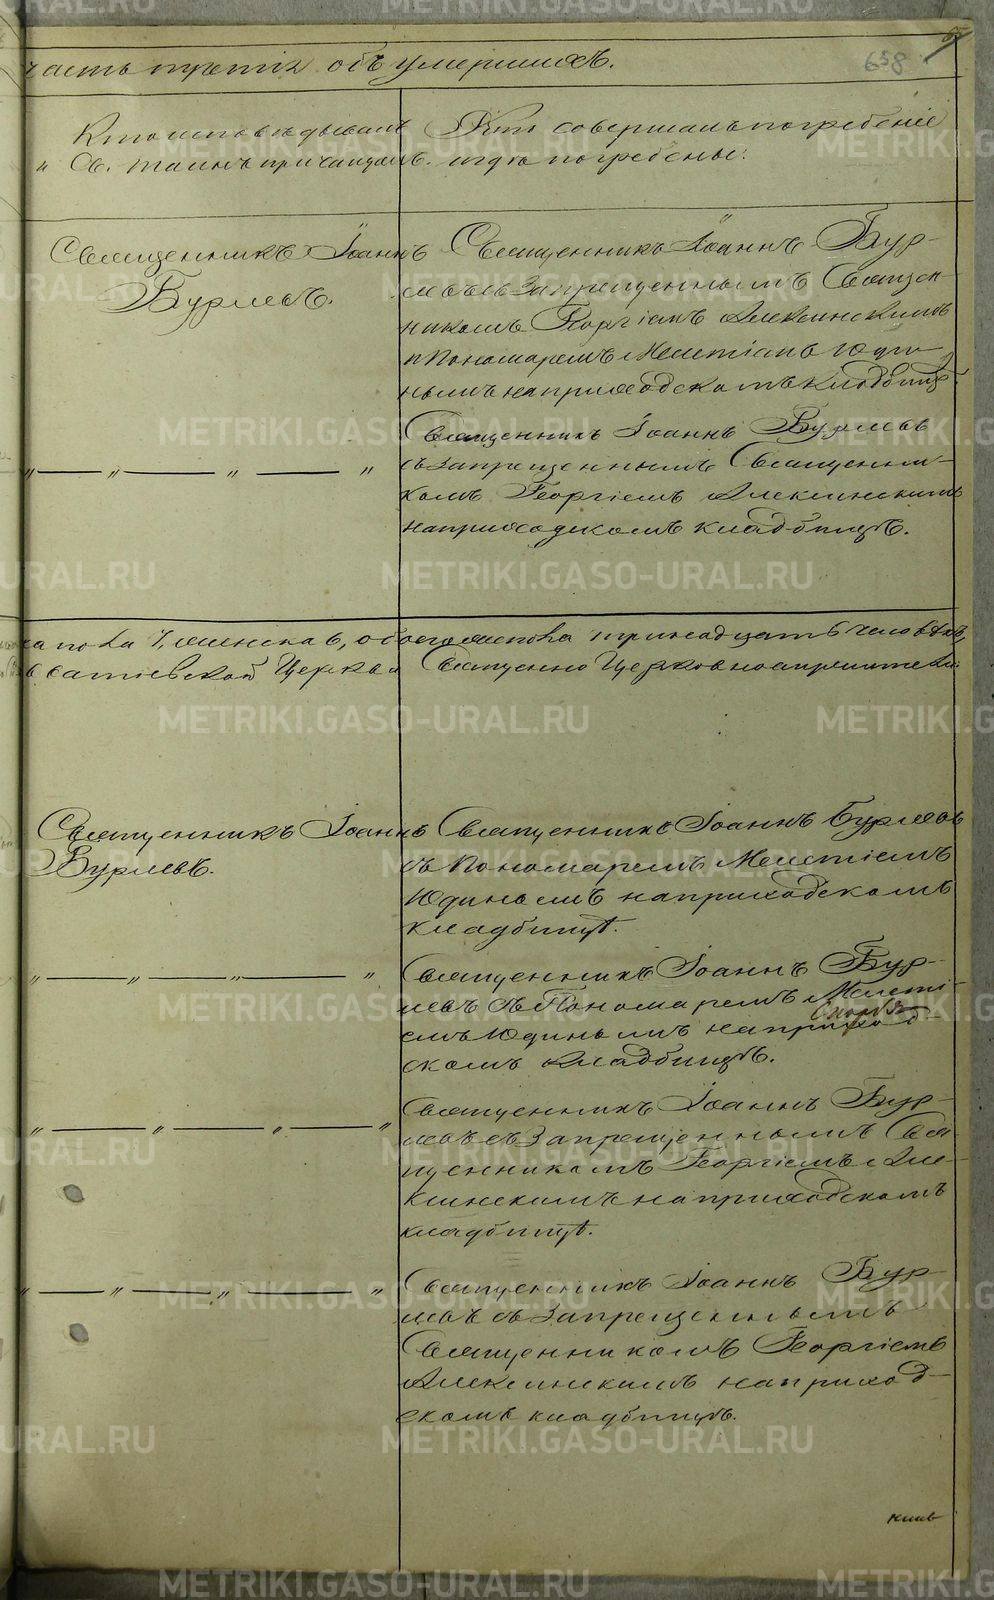 638
часть третія объ умершихъ.
Кто исповѣдывалъ
и Св. таинъ причащалъ.
Кто совершалъ погребеніе
и гдѣ погребены.
Священникъ Іоаннъ
Бурлевъ.
Священникъ Іоаннъ Бур-
левъ съ Запрещеннымъ Священ-
никомъ Георгіемъ Алексинскимъ
и Пономаремъ Мелетіемъ Юди-
нымъ на приходскомъ кладбищѣ.
„ — „ — „ — „
Священникъ Іоаннъ Бурлевъ
съ запрещеннымъ Священни-
комъ Георгіемъ Алексинскимъ
на приходскомъ кладбищѣ.
ка пола 7, женска 6, обоего пола тринадцать человѣкъ,
Церкви Священно Церковнослужители
Священникъ Іоаннъ
Бурлевъ.
Священникъ Іоаннъ Бурлевъ
съ Пономаремъ Мелетіемъ
Юдинымъ на приходскомъ
кладбищѣ.
„ — „ — „ — „
Священникъ Іоаннъ Бур-
левъ съ Пономаремъ Мелеті-
емъ Юдинымъ на приход-
скомъ кладбищѣ.
„ — „ — „ — „
Священникъ Іоаннъ Бур-
левъ съ Запрещеннымъ Свя-
щенникомъ Георгіемъ Але-
ксинскимъ на приходскомъ
кладбищѣ.
„ — „ — „ — „
Священникъ Іоаннъ Бур-
левъ съ Запрещеннымъ
Священникомъ Георгіемъ
Алексинскимъ на приход-
скомъ кладбищѣ.
METRIKI.GASO-URAL.RU